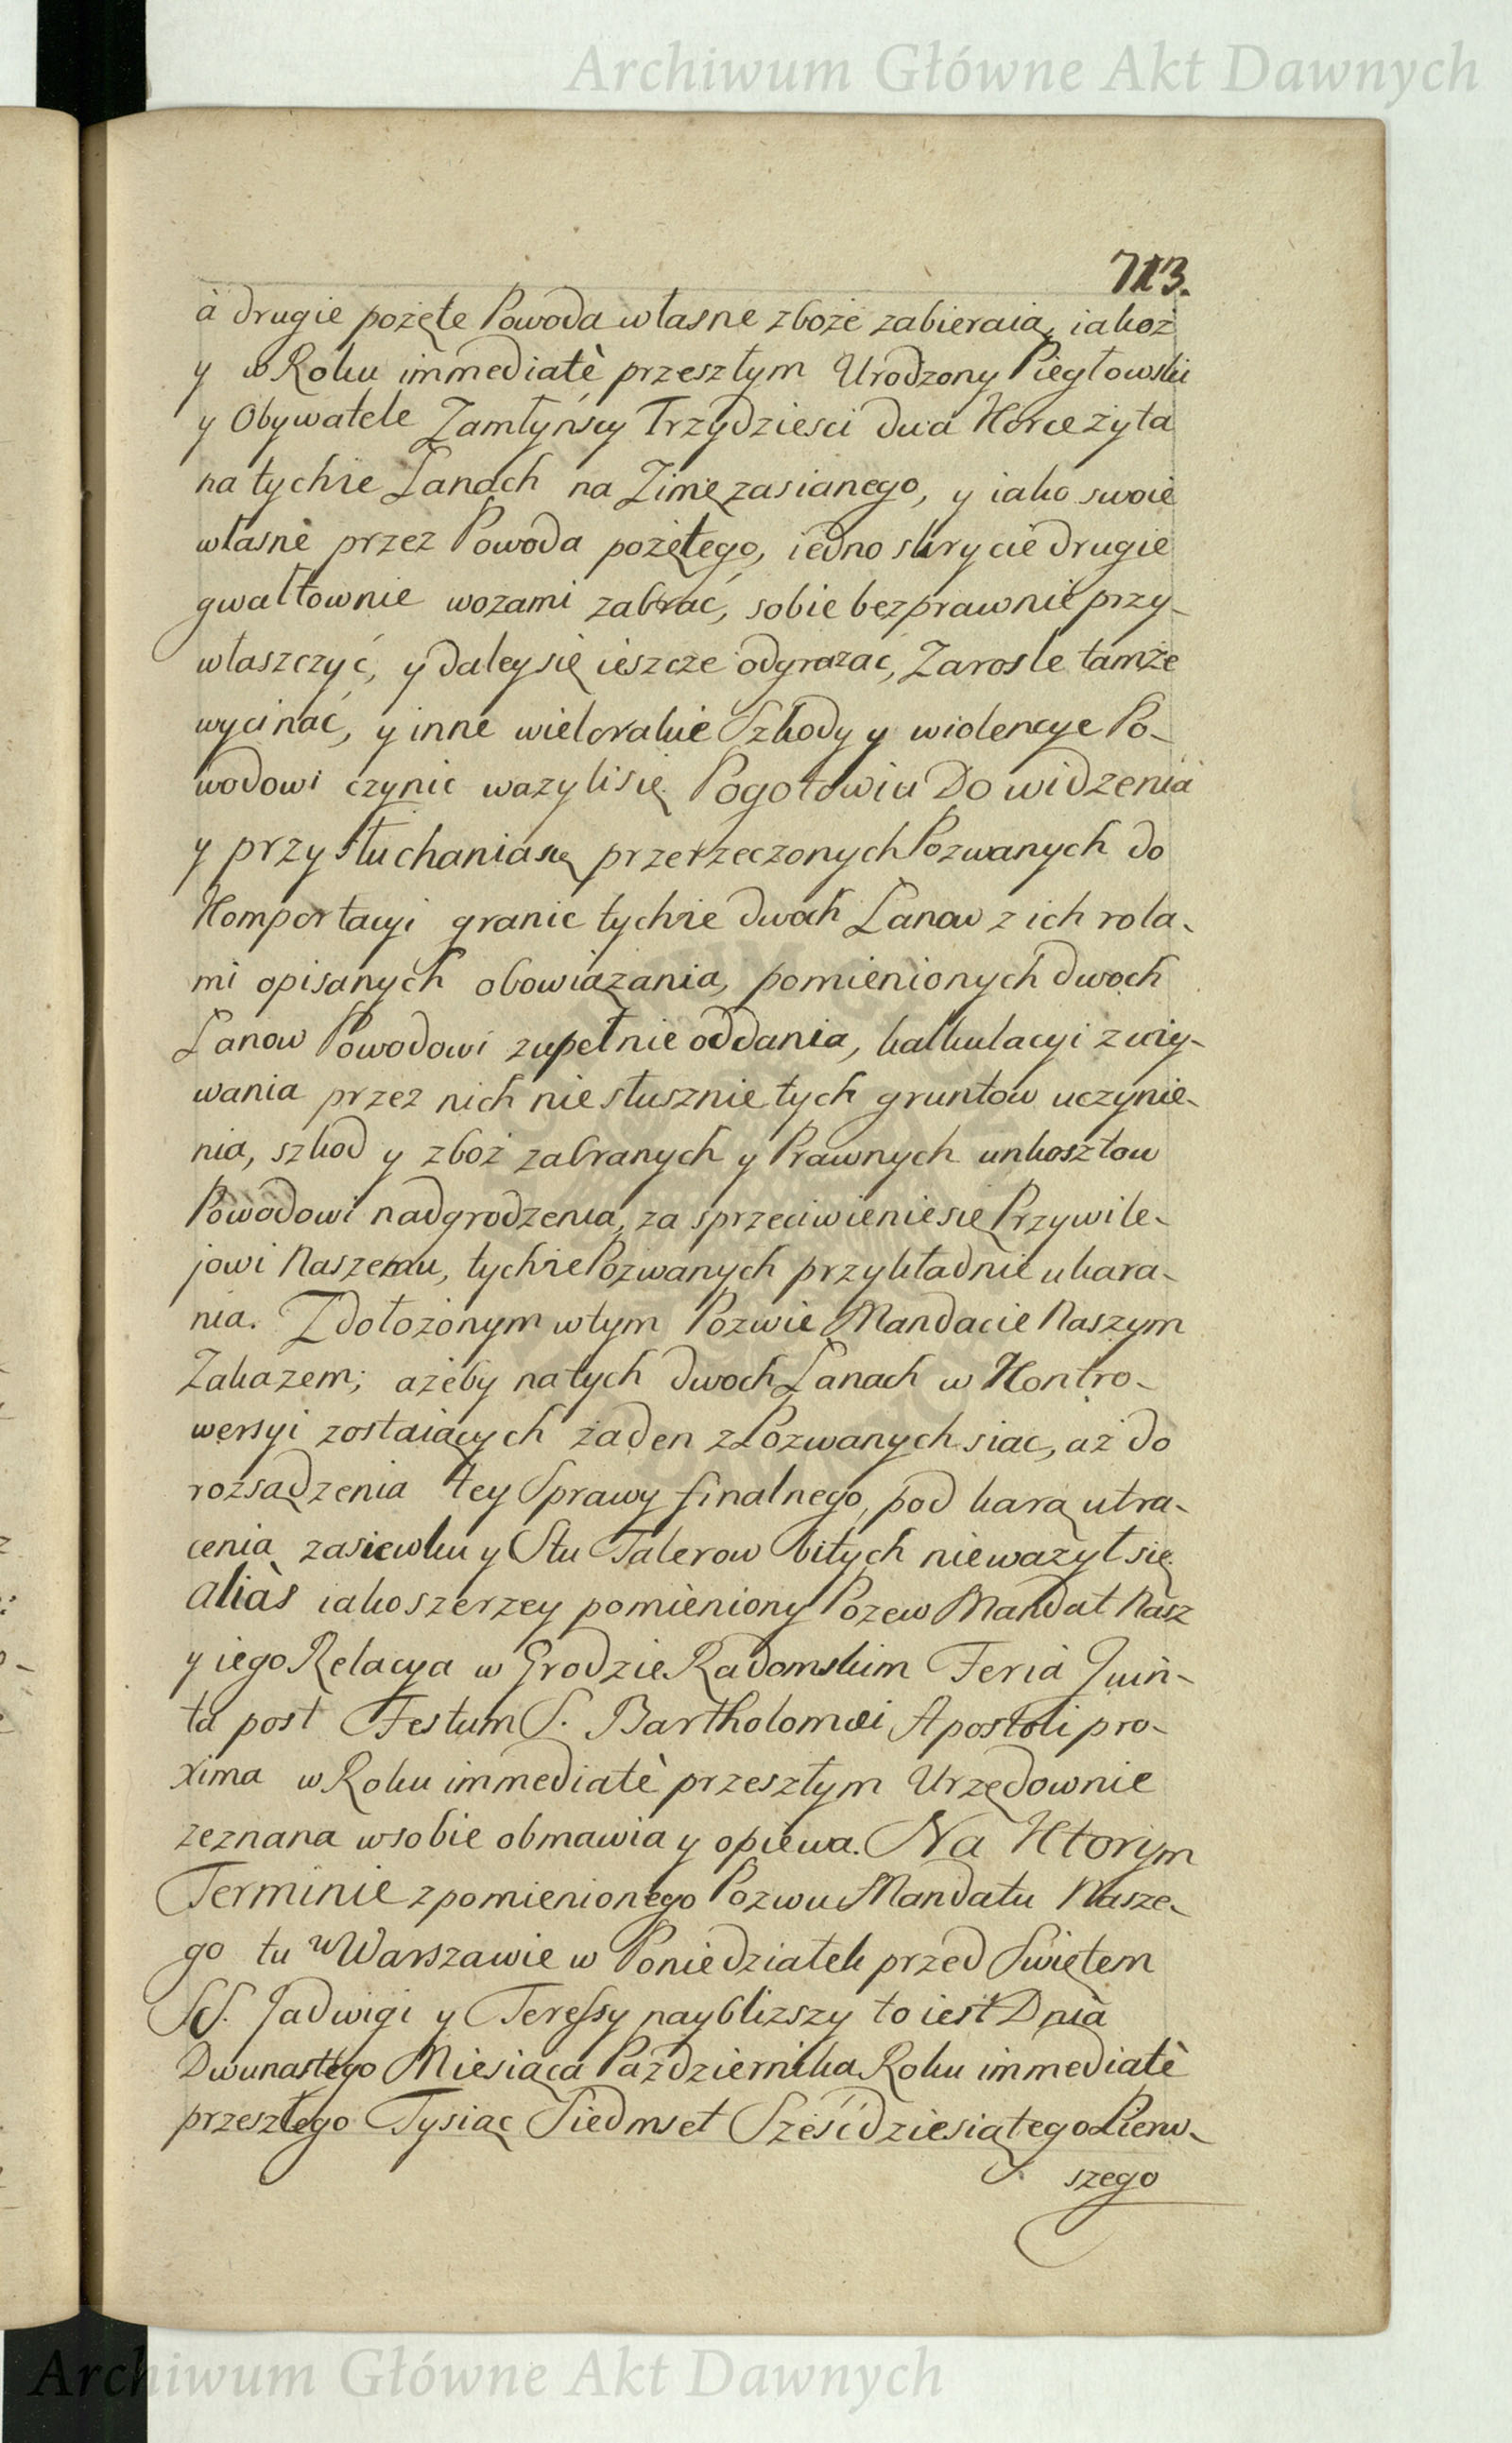 Archiwum Główne Akt Dawnych
713.
à drugie pożęte Powoda własne zboże zabieraią, iakoż
y w Roku immediatè przeszłym Urodzony Piegłowski
y Obywatele Zamłyńscy Trzydziesci dwa Korce żyta
na tychże Łanach na Zimę zasianego, y iako swoie
własne przez Powoda pożętego, iedno skrycie drugie
gwałtownie wozami zabrać, sobie bezprawnie przy-
właszczyć, y daley się ieszcze odgrazać, Zarosle tamże
wycinać, y inne wielorakie Szkody y wiolencye Po-
wodowi czynic wazyli się. Pogotowiu Do widzenia
y przysłuchania się przerzeczonych Pozwanych do
Komportacyi granic tychże dwoch Łanow z ich rola-
mi opisanych obowiązania, pomienionych dwoch
Łanow Powodowi zupełnie oddania, kalkulacyi z uży-
wania przez nich niesłusznie tych gruntow uczynie-
nia, szkod y zboż zabranych y Prawnych unkosztow
Powodowi nadgrodzenia, za sprzeciwienie się Przywile-
jowi Naszemu, tychże Pozwanych przykładnie ukara-
nia. Z dołożonym w tym Pozwie Mandacie Naszym
Zakazem; ażeby na tych dwoch Łanach w Kontro-
wersyi zostaiących żaden z Pozwanych siac, aż do
rozsądzenia tey Sprawy finalnego, pod karą utra-
cenia zasiewku y Stu Talerow bitych nieważył się
aliàs iako szerzey pomieniony Pozew Mandat Nasz
y iego Relacya w Grodzie Radomskim Feria Quin-
ta post Festum S. Bartholomæi Apostoli pro-
xima w Roku immediatè przeszłym Urzędownie
zeznana w sobie obmawia y opiewa. Na Ktorym
Terminie z pomienionego Pozwu Mandatu Nasze-
go tu w Warszawie w Poniedziałek przed Swiętem
SS. Jadwigi y Teressy naybliższy to iest Dnia
Dwunastego Miesiąca Października Roku immediatè
przeszłego Tysiąc Siedmset Sześćdziesiątego Pierw-
szego
Archiwum Główne Akt Dawnych